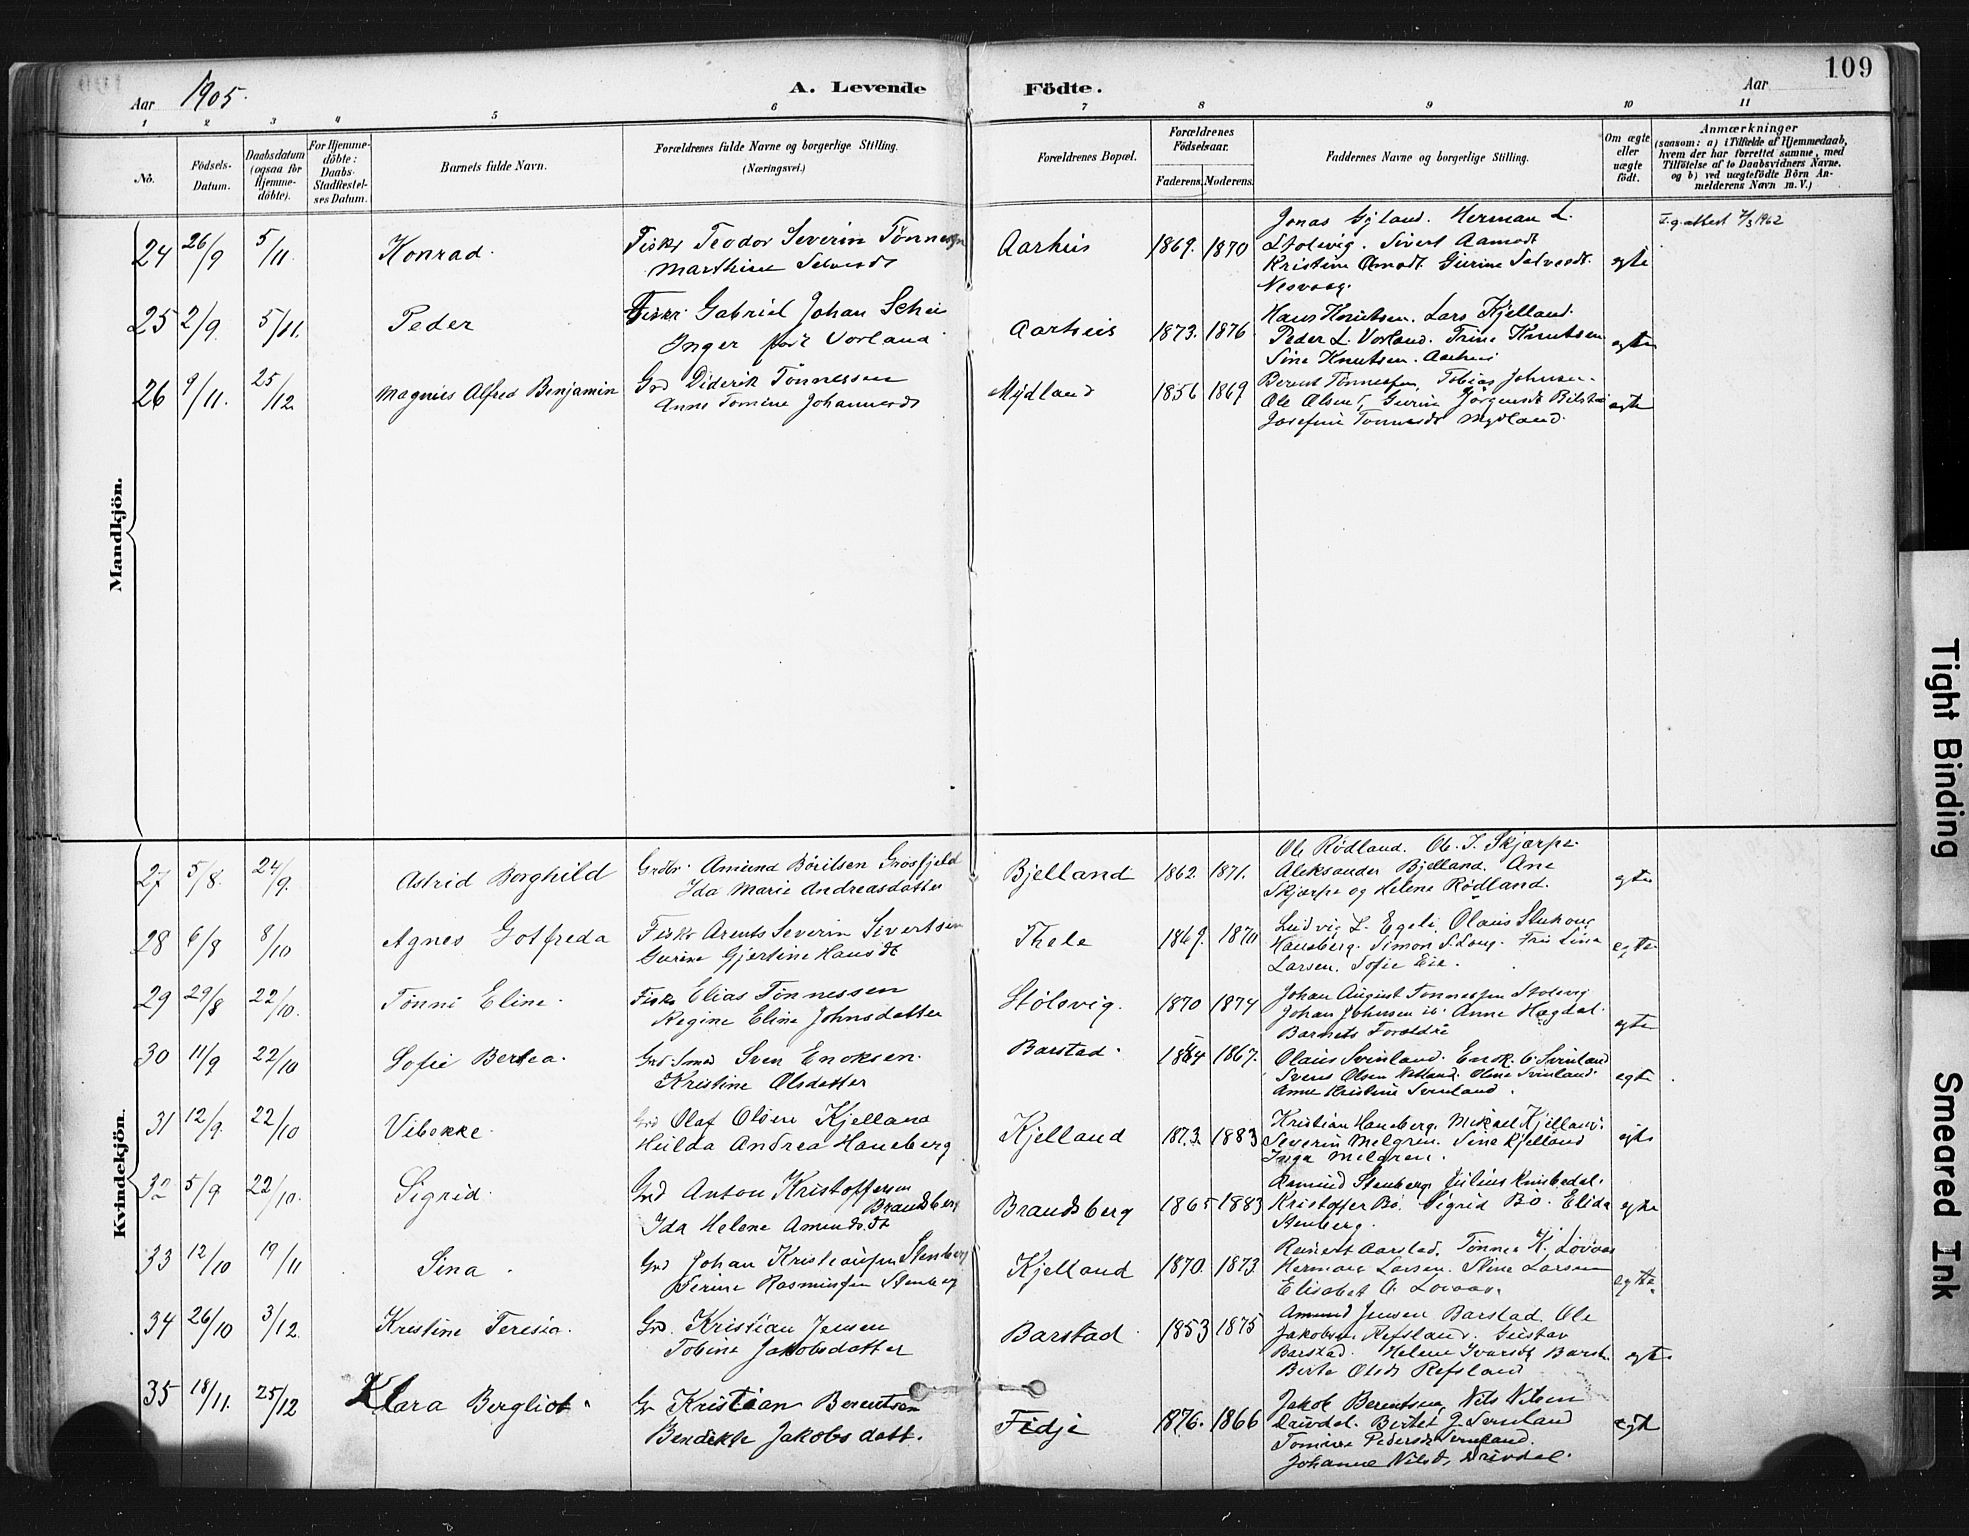 109
Aar 1905.
A. Levende Födte.
Aar
1 2 3 4 5 6 7 8 9 10 11
No.
Födsels-Datum.
Daabsdatum (ogsaa for Hjemme-döbte).
For Hjemme-döbte: Daabs-Stadfæstel-ses Datum.
Barnets fulde Navn.
Forældrenes fulde Navne og borgerlige Stilling. (Næringsvei.)
Forældrenes Bopæl.
Forældrenes Födselsaar.
Faderens. Moderens.
Faddernes Navne og borgerlige Stilling.
Om ægte eller uægte födt.
Anmærkninger
(saasom: a) i Tilfælde af Hjemmedaab, hvem der har forrettet samme, med Tilföielse af to Daabsvidners Navne. og b) ved uægtefödte Börn An-melderens Navn m. V.)
Mandkjön.
24 26/9 5/11 Konrad. Fiskr Teodor Severin Tönnesen
Marthine Salvesdt
Aarhus 1869. 1870
Jonas Gyland. Herman L.
Stolsvig. Sivert Aamodt
Kristine Omodt. Gurine Salvesdt.
Nesvaag.
egte
F.g. attest 7/3 1962
25 2/9. 5/11. Peder
Fiskr. Gabriel Johan
Inger Vorland
Aarhus 1873. 1876
Hans Knutsen. Lars Kjelland.
Peder L. Vorland. Trine Knutsen
Sine Knutsen. Aarhus
egte
26 9/11. 25/12 Magnus Alfred Benjamin
Grd Diderik Tönnessen
Anne Tomine Johannesdt
Mydland 1856 1869
Berent Tönnessen, Tobias Johnsen.
Ole Olsen, Gurine Jörgensdt
Josefine Tonnesdt Mydland.
egte
Kvindekjön.
27 5/8. 24/9. Astrid Borghild
Amund Börilsen Grosfjeld
Ida Marie Andreasdatter
Bjelland 1862. 1871.
Ole Rödland. Ol. T. Skjærpe.
Aleksander Bjelland. Ane
Skjærpe og Helene Rödland.
egte
28 6/8 8/10 Agnes Gotfreda
Fiskr Arents Severin Sivertsen
Gurine Gjertine Hansdt
Thele 1869. 1870
Ludvig L. Egeli. Olaus
Haneberg. Simon
Larsen. Sofie Eie.
egte
29 29/8 22/10. Tönni Eline.
Fiskr Elias Tönnessen
Regine Eline Johnsdatter
Stölsvig. 1870 1874
Johan August Tonnessen Stolsvig
Johan Johnsen ib. Anne Hogdal.
Barnets Foreldre
egte
30 11/9 22/10 Sofie Bertea.
Grd Smed Sven Enoksen.
Kristine Olsdatter
Barstad. 1864 1867.
Olaus Svinland. Enok. O. Svinland
Olsen Netland. Oline Svinland.
Anne Kristine Svinland.
egte
31 12/9. 22/10 Vibekke.
Grd Olaf Olsen Kjelland
Hulda Andrea Haneberg
Kjelland 1873. 1883
Kristian Haneberg. Mikael Kjelland.
Severin Melgren. Sine Kjelland
Inga Melgren.
egte
32 5/9 22/10. Sigrid.
Grd Anton Kristoffersen
Brandsberg
Ida Helene Amundsdt
Brandsberg 1865 1883
Rasmund Stenberg, Julius
Kristoffer Bö. Sigrid Bö. Elida
Stenberg.
egte
33 12/10 19/11 Sina.
Grd Johan Kristiansen Stenberg
Serine Rasmussen Stenberg
Kjelland 1870. 1873.
Reinert Aarstad. Tönnes K. Lovaas
Herman Larsen. Stine Larsen
Elisabet O. Lovaas.
egte.
34 26/10 3/12. Kristine Teresia.
Grd. Kristian Jensen
Tobine Jakobsdatter
Barstad 1853 1875
Amund Jensen Barstad. Ole
Jakobsen Refsland. Gustav
Barstad. Helene Ivarsdt Barst.
Berte Olsdt Refsland
egte
35 18/11. 25/12 Klara Bergliot.
Gr Kristian Berentsen
Bendikte Jakobsdatt.
Fidje 1876. 1866
Jakob Berentsen, Nils Nilsen
Drivdal. Bertel J. Svinland
Tomine Pedersdt Svinland.
Johanne Nilsdt Drivdal.
egte
Tight Binding
Smeared Ink